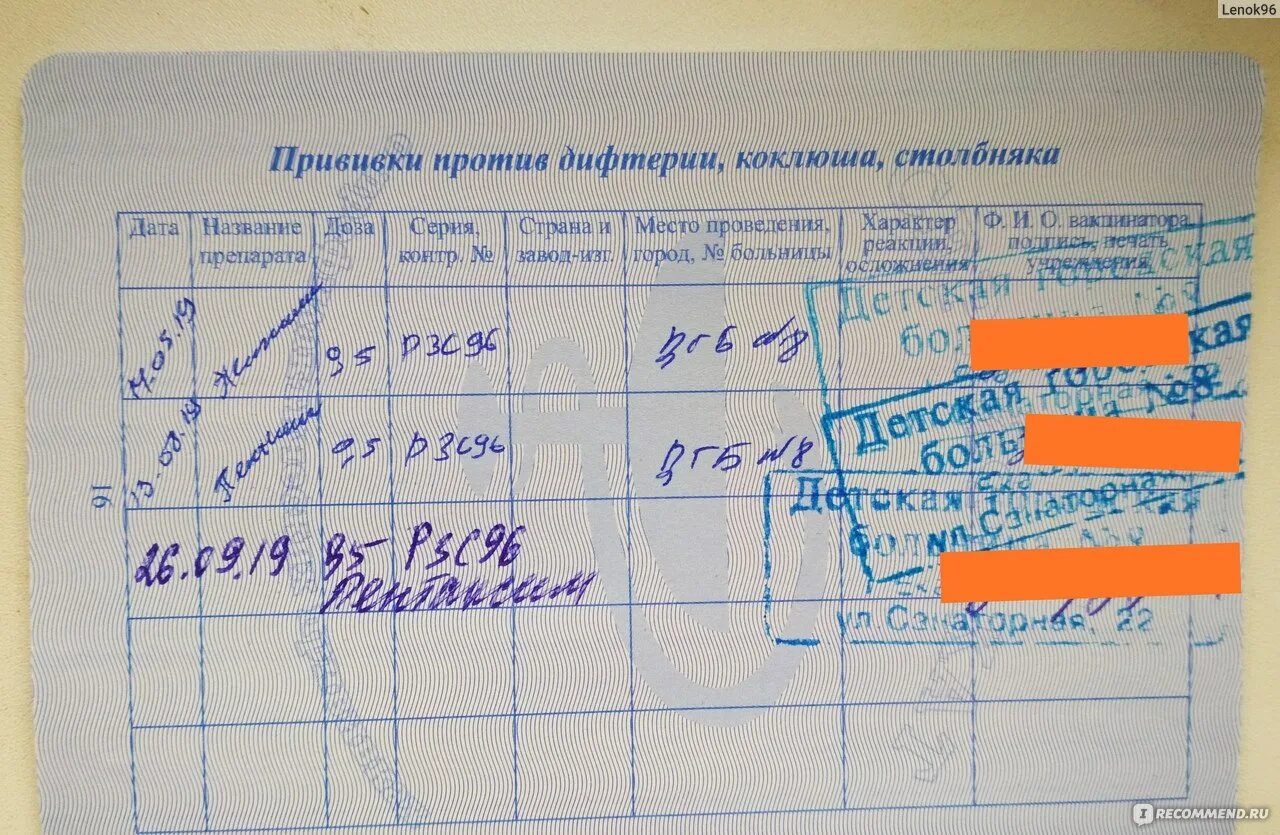 Lenok96
Прививки против дифтерии, коклюша, столбняка
Дата Название препарата Доза Серия, контр. № Страна и завод-изг. Место проведения, город, № больницы Характер реакции, осложнения Ф. И. О. вакцинатора, подпись, печать учреждения
05.19 0,5 P3C96 ДГБ №8
13.08.19 0,5 P3C96 ДГБ №8
26.09.19 0,5 P3C96
Пентаксим
Детская городская
Детская
Детская
ул. Санаторная
ул. Санаторная, 22
16
RECOMMEND.RU